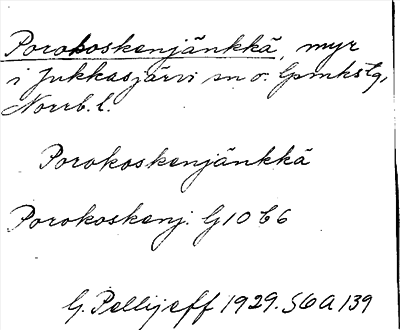 Porokoskenjänkkä, myr
i Jukkasjärvi sn o. Gpmhstg,
Norrb. l.
Porokoskenjänkkä
Porokoskenj. G10 C6
G. Pellijeff 1929. S6A 139